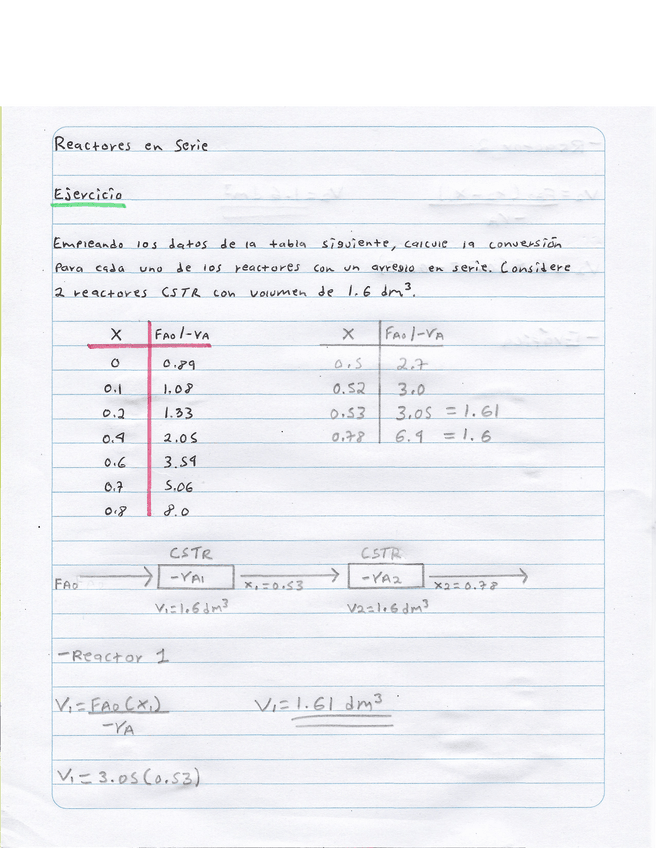 Reactores en Serie
Ejercicio
Empleando los datos de la tabla siguiente, calcule la conversión
para cada uno de los reactores con un arreglo en serie. Considere
2 reactores CSTR con volumen de 1.6 dm³.
X FA0/-rA
0 0.89
0.1 1.08
0.2 1.33
0.4 2.05
0.6 3.54
0.7 5.06
0.8 8.0
X FA0/-rA
0.5 2.7
0.52 3.0
0.53 3.05 = 1.61
0.78 6.4 = 1.6
CSTR CSTR
FA0 -rA1 X1=0.53 -rA2 X2=0.78
V1=1.6 dm³ V2=1.6 dm³
-Reactor 1
V1=FA0(X1)/-rA V1=1.61 dm³
V1=3.05(0.53)